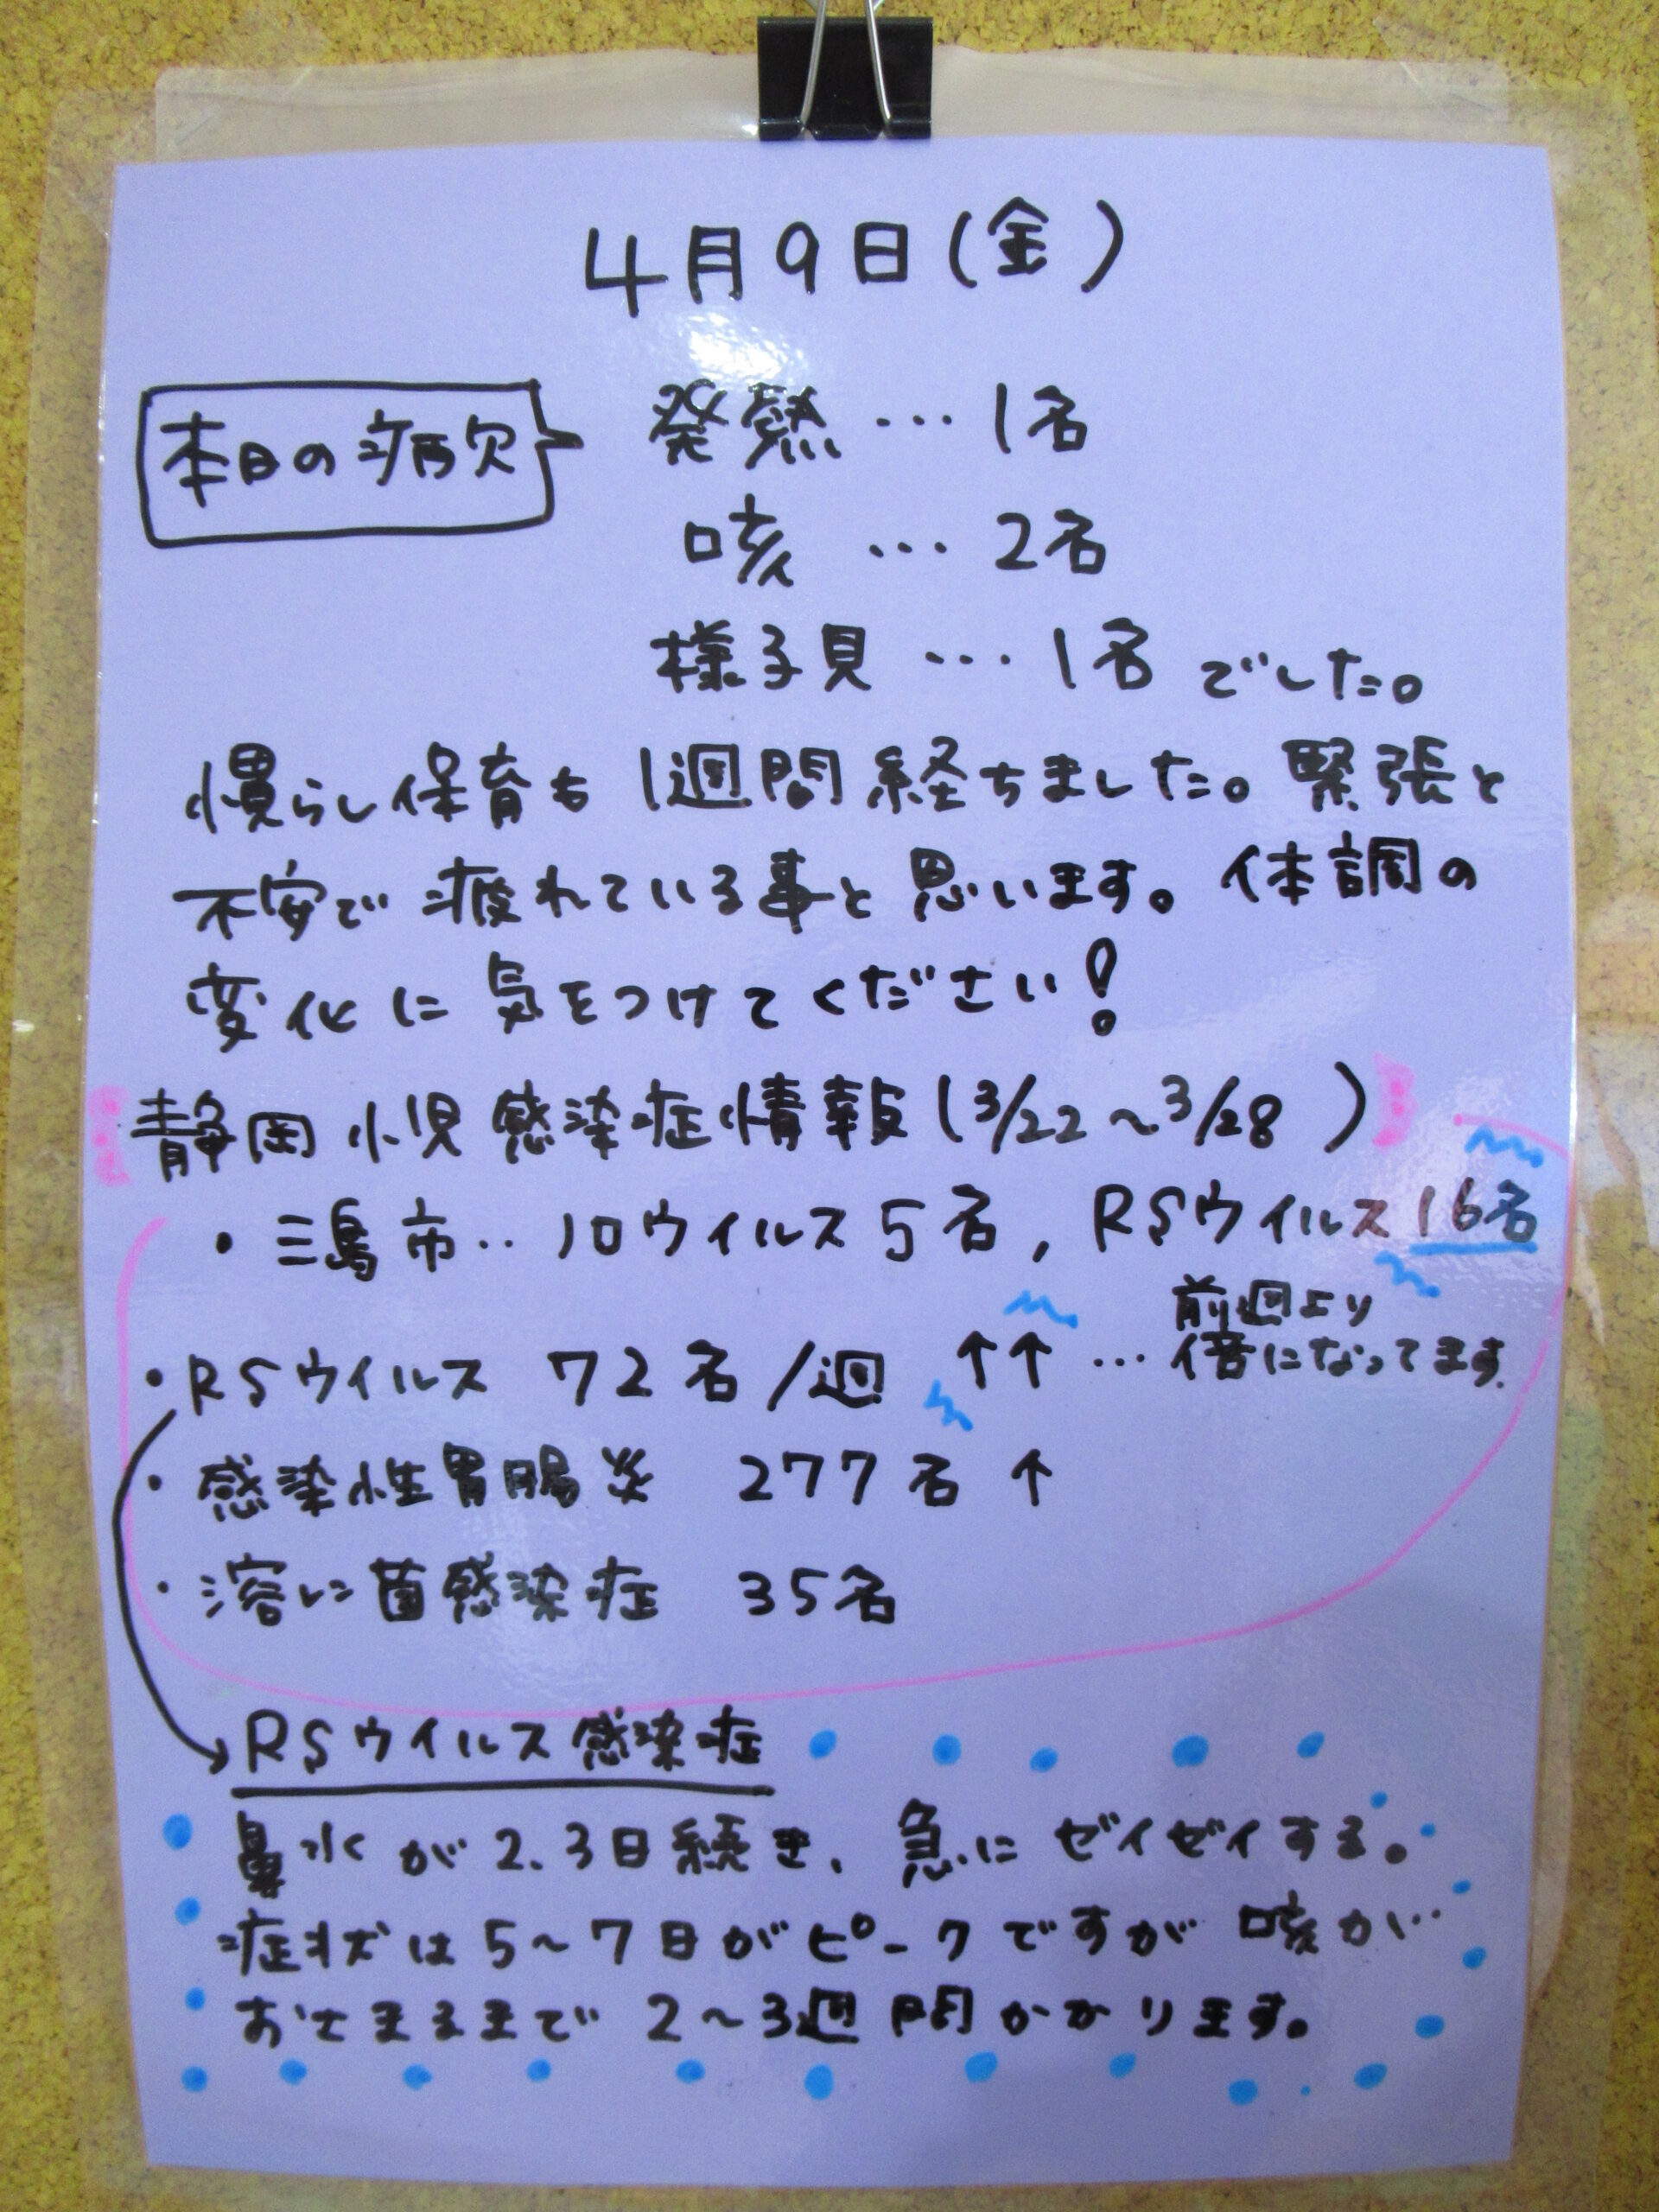 4月9日(金)
本日の病欠
発熱…1名
咳…2名
様子見…1名でした。
慣らし保育も1週間経ちました。緊張と
不安で疲れている事と思います。体調の
変化に気をつけてください!
静岡小児感染症情報(3/22～3/28)
・三島市‥ノロウイルス5名,RSウイルス16名
・RSウイルス 72名/週 ↑↑…前週より
倍になってます.
・感染性胃腸炎 277名↑
・溶レン菌感染症 35名
RSウイルス感染症
鼻水が2.3日続き、急にゼイゼイする。
症状は5～7日がピークですが咳が
おさまるまで2～3週間かかります。